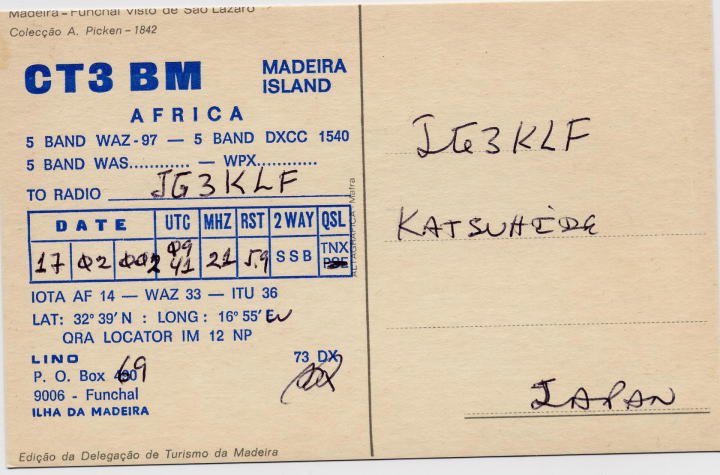 Madeira – Funchal visto de São Lázaro
Colecção A. Picken – 1842
CT3 BM
MADEIRA
ISLAND
AFRICA
5 BAND WAZ-97 — 5 BAND DXCC 1540
5 BAND WAS............ — WPX............
TO RADIO JG3KLF
DATE UTC MHZ RST 2 WAY QSL
17 02 002 09 41 21 59 SSB TNX PSE
IOTA AF 14 — WAZ 33 — ITU 36
LAT: 32° 39' N : LONG : 16° 55' W
QRA LOCATOR IM 12 NP
LINO
73 DX
P. O. Box 69
9006 - Funchal
ILHA DA MADEIRA
Edição da Delegação de Turismo da Madeira
ALTAGRÁFICA - Mafra
JG3KLF
KATSUHIDE
JAPAN